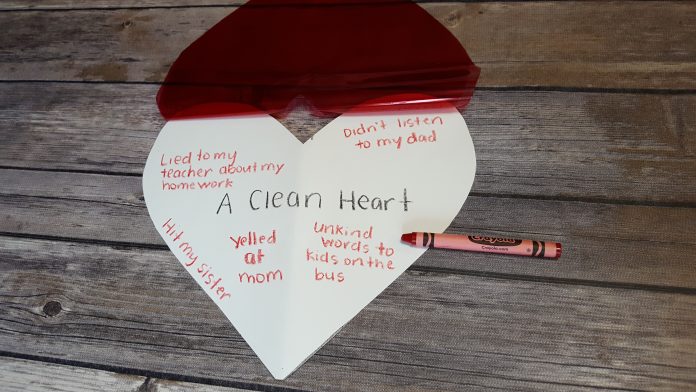 Didn't listen
to my dad
Lied to my
teacher about my
homework
A Clean Heart
Hit my sister
Yelled
at
mom
unkind
words to
kids on the
bus
Crayola